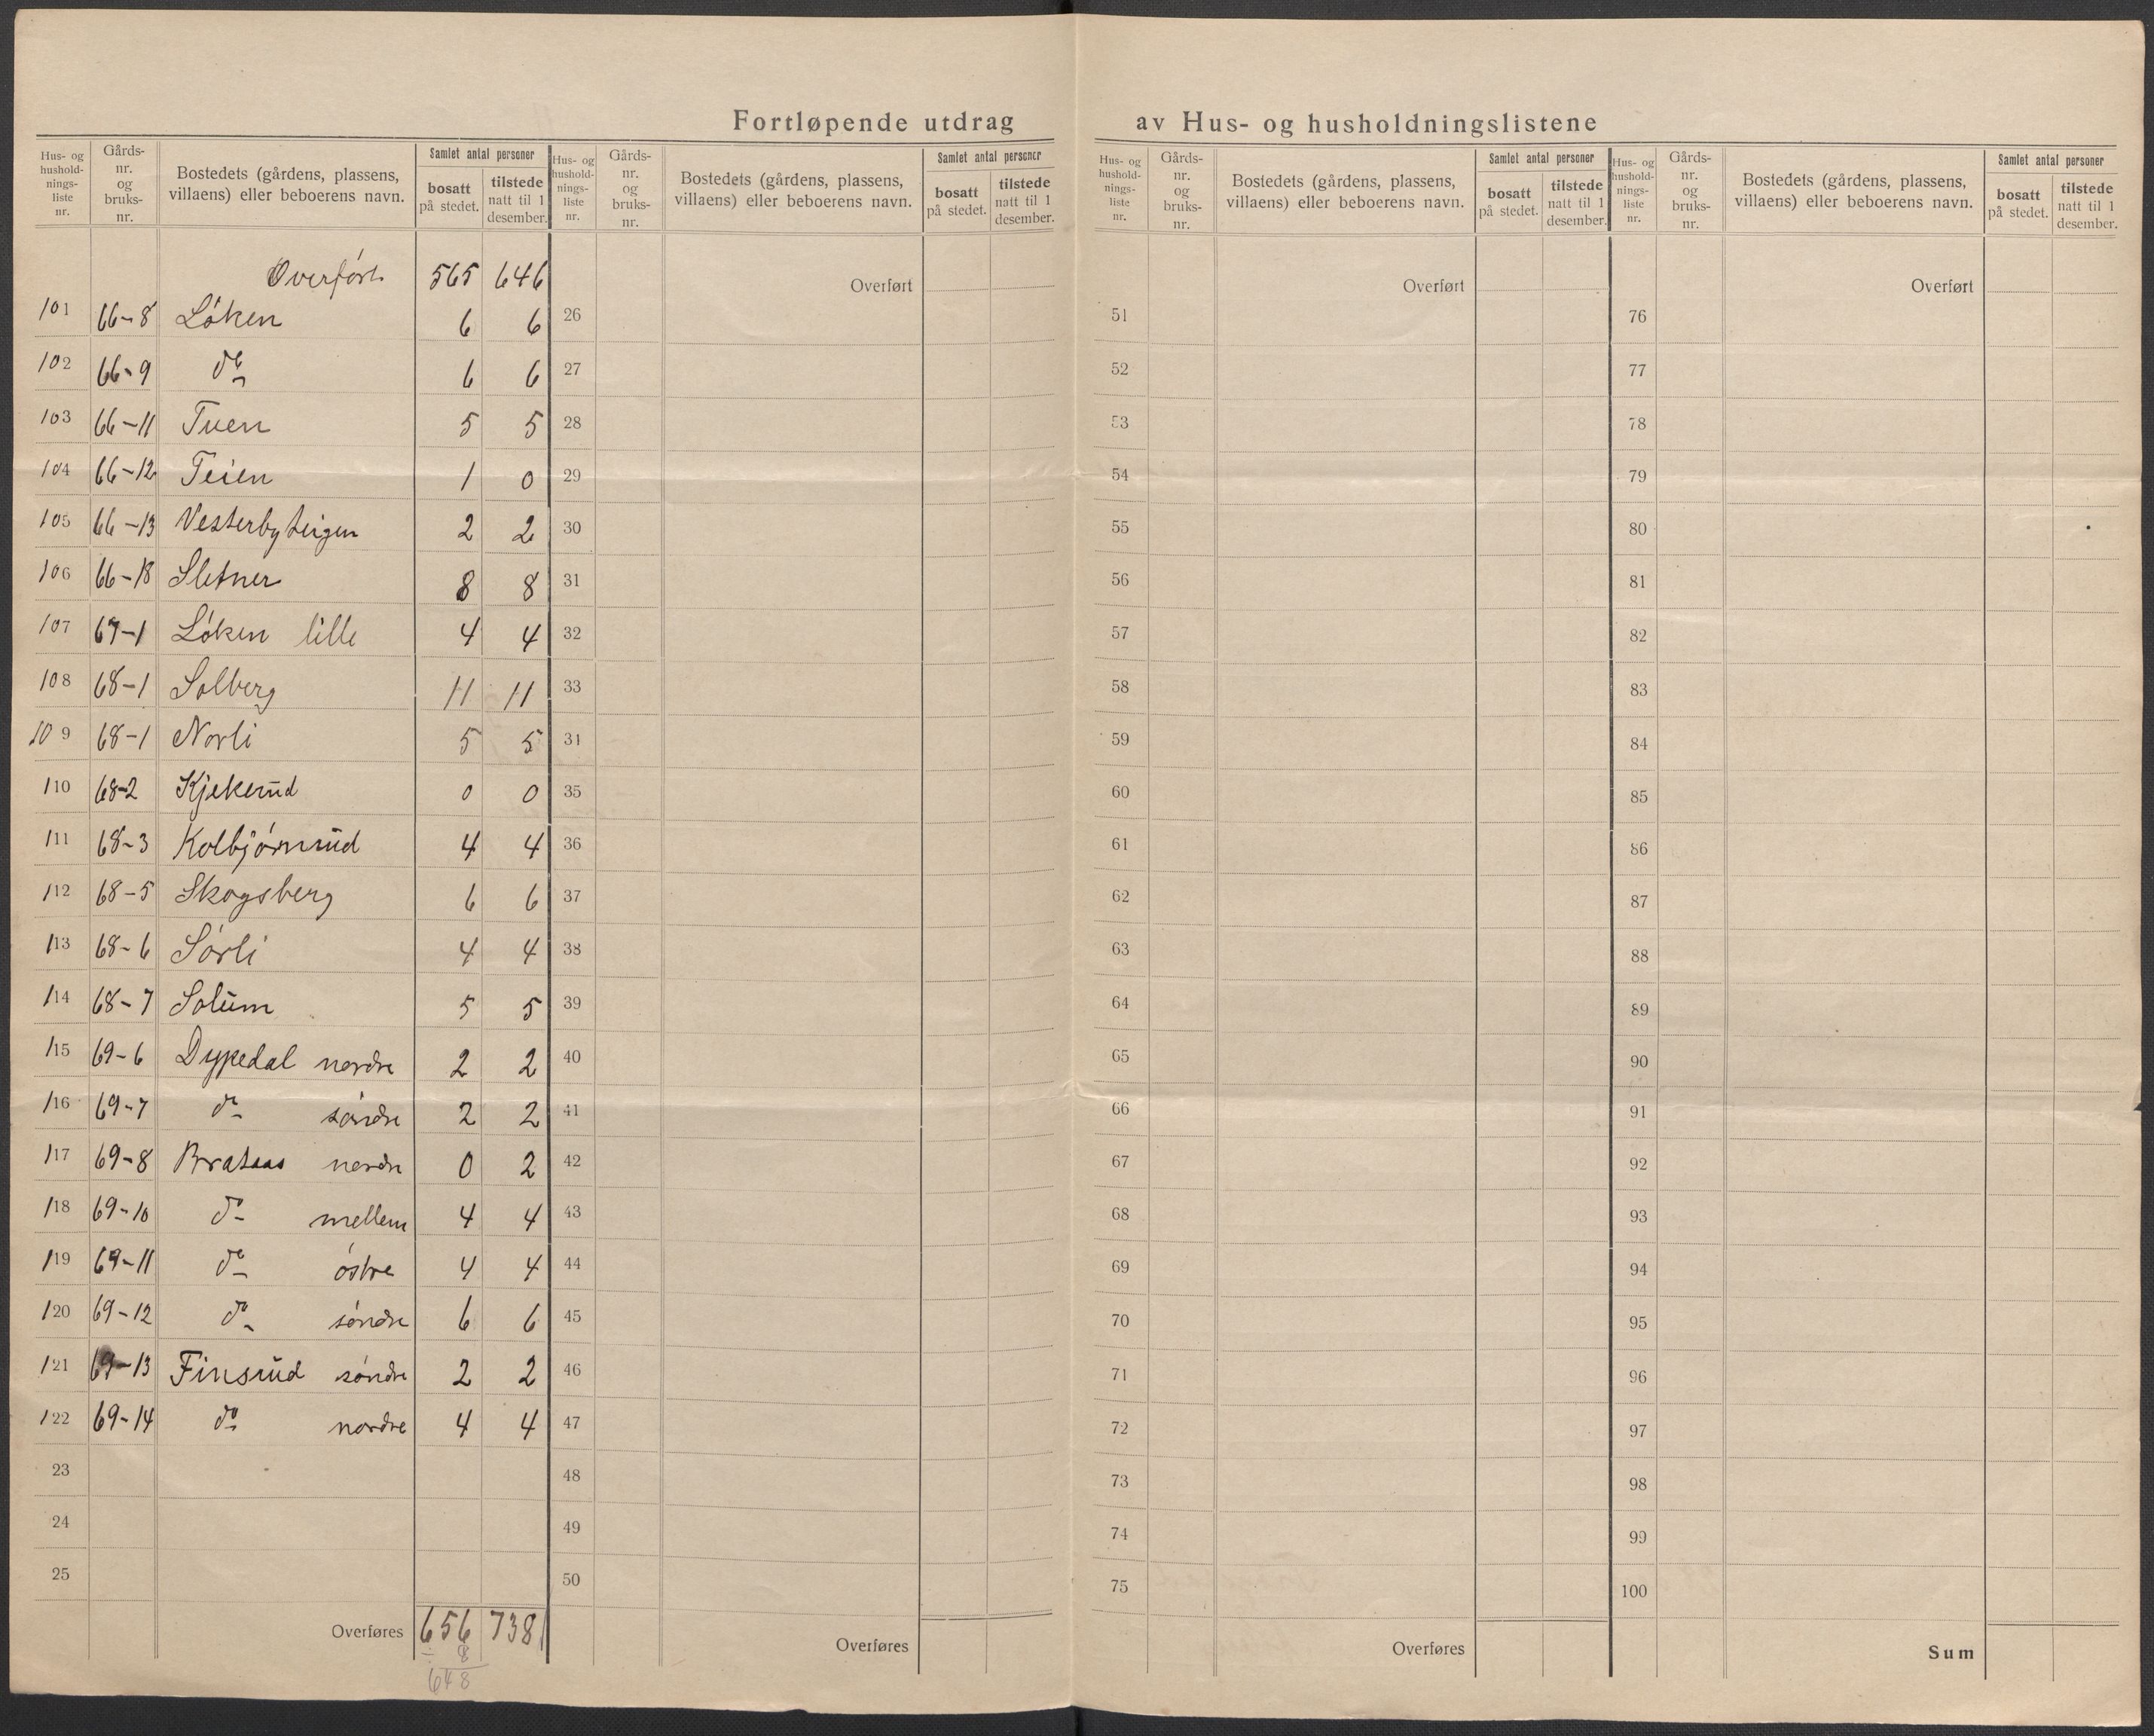 Fortløpende utdrag av Hus- og husholdningslistene
Hus- og hushold-nings-liste nr. Gårds-nr. og bruks-nr. Bostedets (gårdens, plassens, villaens) eller beboerens navn. Samlet antal personer bosatt på stedet. tilstede natt til 1 desember.
Overført 565 646
101 66-8 Løken 6 6
102 66-9 do 6 6
103 66-11 Tuen 5 5
104 66-12 Teien 1 0
105 66-13 Vesterbyteigen 2 2
106 66-18 Sletner 8 8
107 67-1 Løken lille 4 4
108 68-1 Solberg 11 11
109 68-1 Norli 5 5
110 68-2 Kjekerud 0 0
111 68-3 Kolbjørnrud 4 4
112 68-5 Skogsberg 6 6
113 68-6 Sørli 4 4
114 68-7 Solum 5 5
115 69-6 Dypedal nordre 2 2
116 69-7 do søndre 2 2
117 69-8 Brataas nordre 0 2
118 69-10 do mellem 4 4
119 69-11 do østre 4 4
120 69-12 do søndre 6 6
121 69-13 Finsrud søndre 2 2
122 69-14 do nordre 4 4
23
24
25
Overføres 656 738
÷ 8
648
Hus- og hushold-nings-liste nr. Gårds-nr. og bruks-nr. Bostedets (gårdens, plassens, villaens) eller beboerens navn. Samlet antal personer bosatt på stedet. tilstede natt til 1 desember.
Overført
26
27
28
29
30
31
32
33
31
35
36
37
38
39
40
41
42
43
44
45
46
47
48
49
50
Overføres
Hus- og hushold-nings-liste nr. Gårds-nr. og bruks-nr. Bostedets (gårdens, plassens, villaens) eller beboerens navn. Samlet antal personer bosatt på stedet. tilstede natt til 1 desember.
Overført
51
52
53
54
55
56
57
58
59
60
61
62
63
64
65
66
67
68
69
70
71
72
73
74
75
Overføres
Hus- og hushold-nings-liste nr. Gårds-nr. og bruks-nr. Bostedets (gårdens, plassens, villaens) eller beboerens navn. Samlet antal personer bosatt på stedet. tilstede natt til 1 desember.
Overført
76
77
78
79
80
81
82
83
84
85
86
87
88
89
90
91
92
93
94
95
96
97
98
99
100
Sum